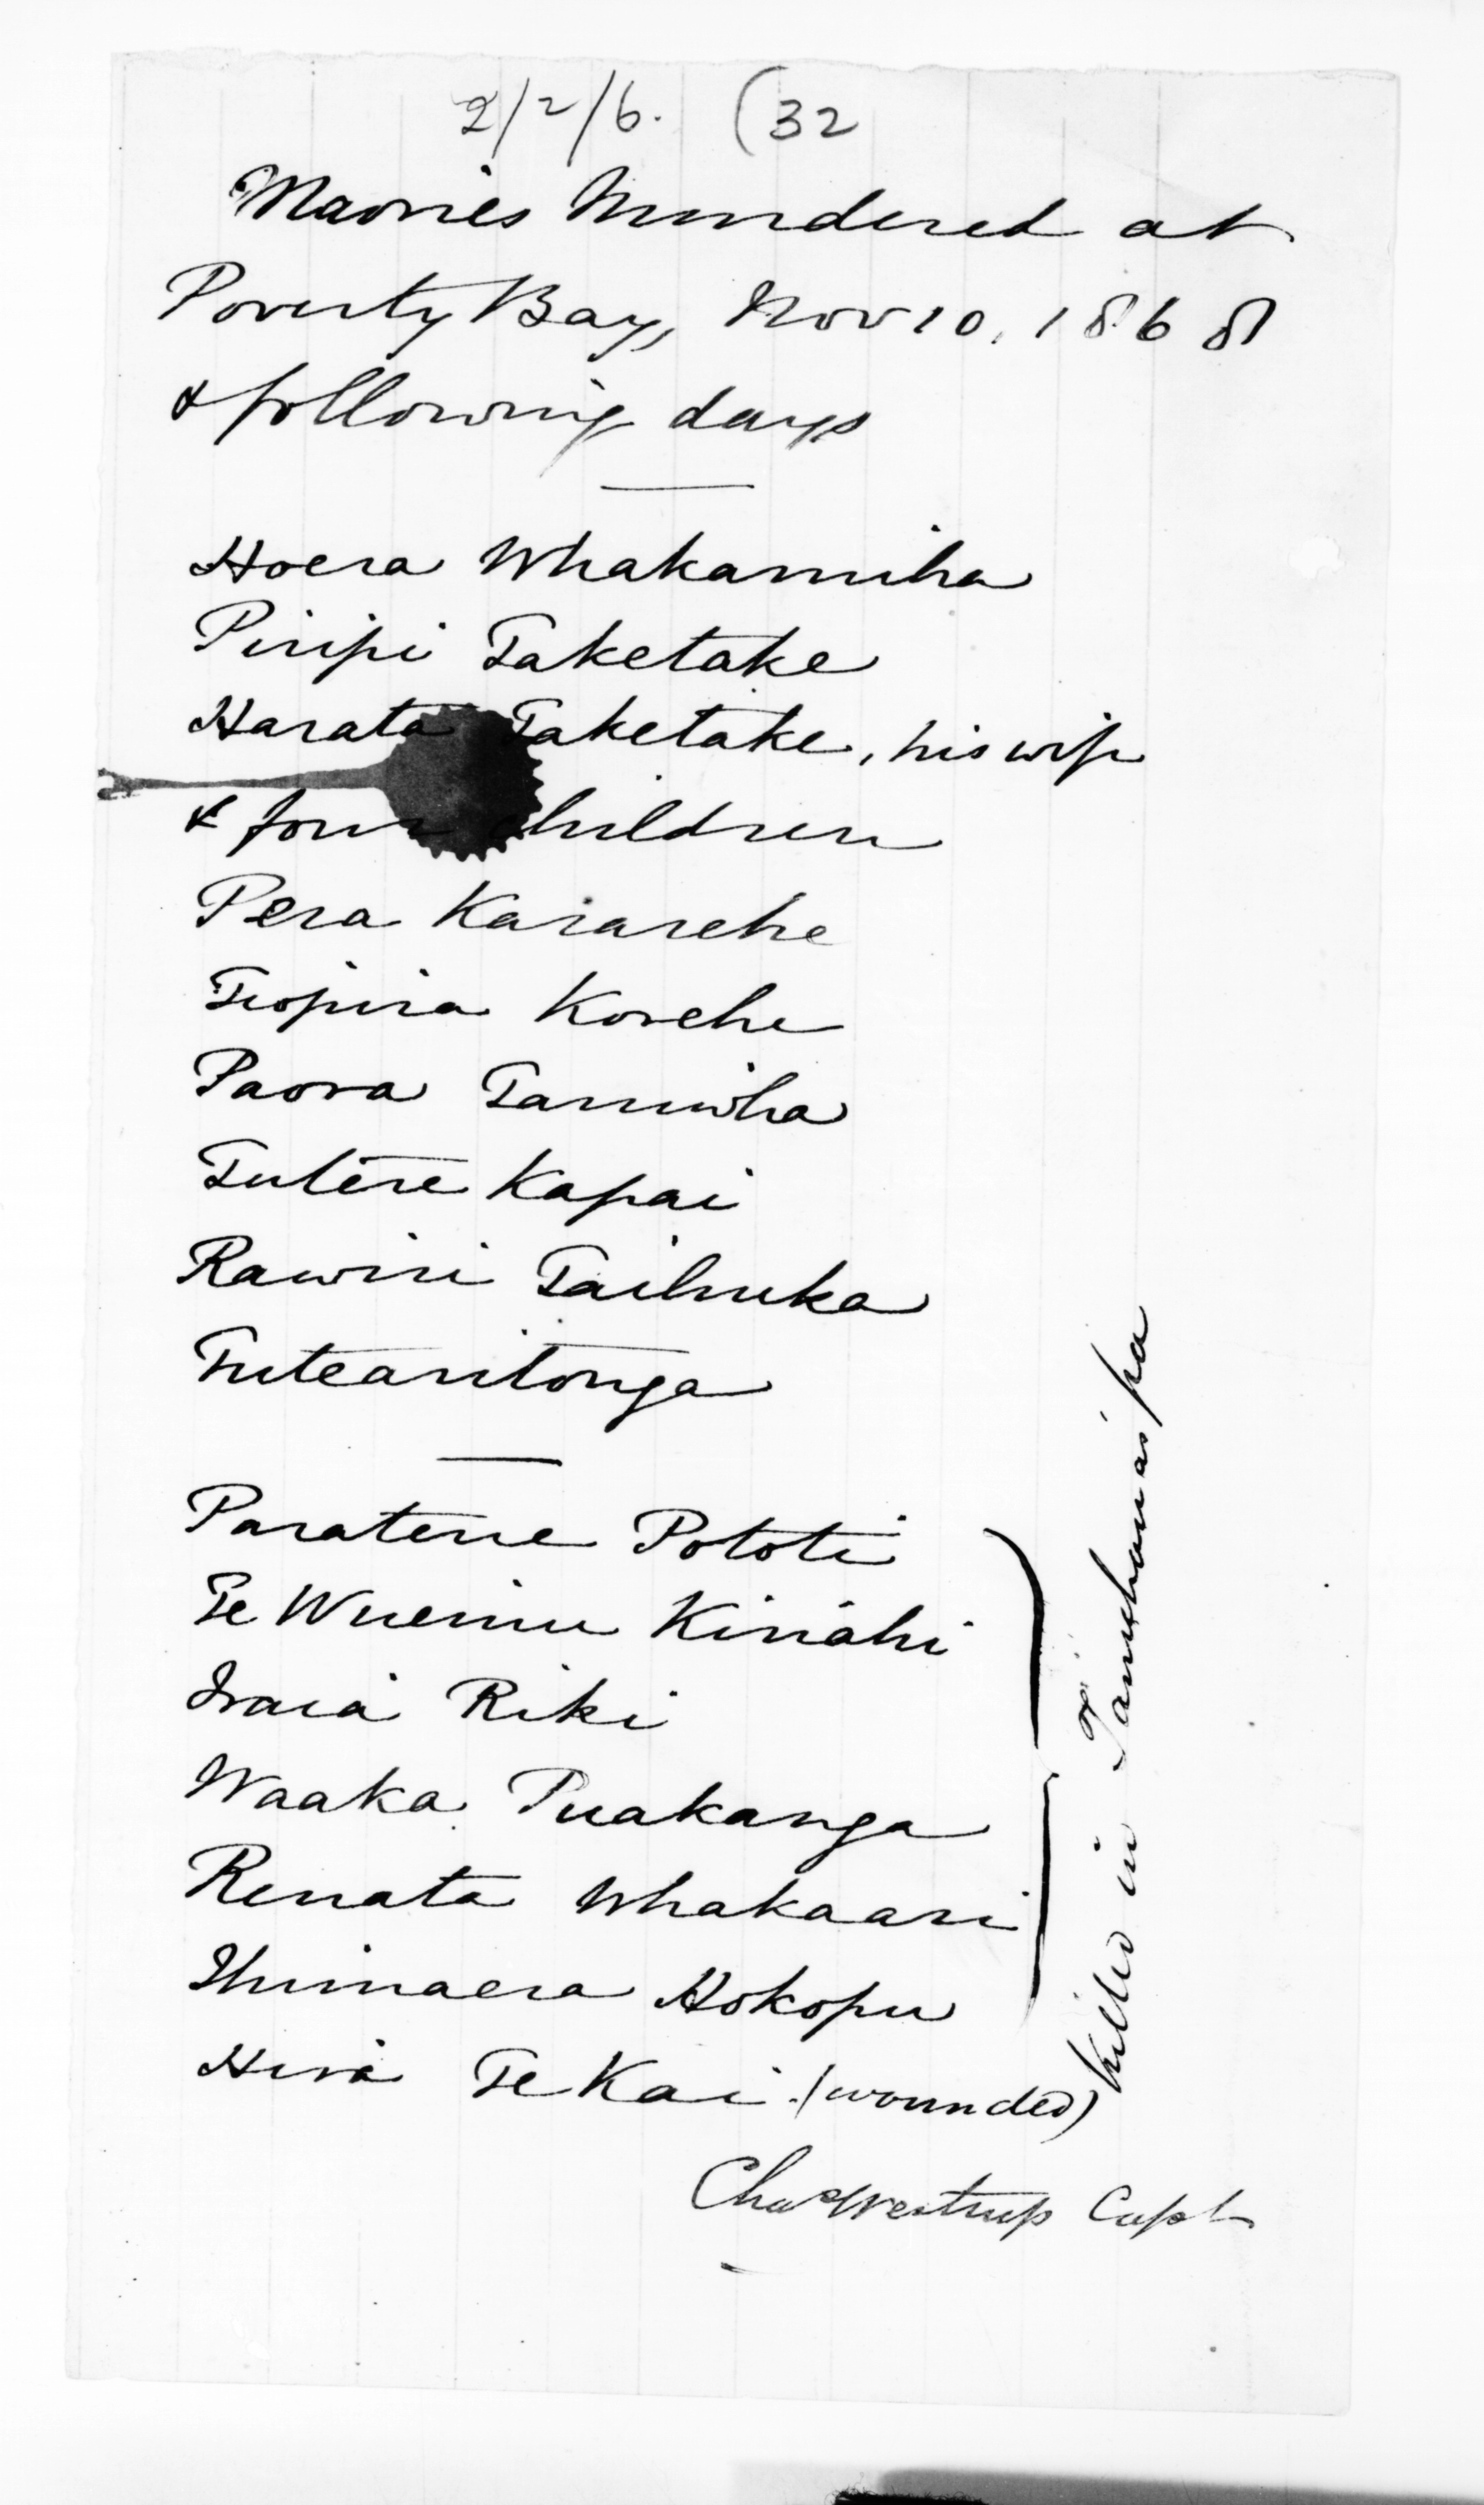 2/2/6. (32
Maories Murdered at
Poverty Bay, Nov 10. 1868
& following days
Hoera Whakamiha
Piripi Taketake
Harata Taketake, his wife
& four children
Pera Kararehe
Tiopira Korehe
Paora Taniwha
Tutere Kapai
Rawiri Taihuka
Tutearitonga
Paratene Pototi
Te Wiremu Kinahi
Iraia Riki
Waaka Puakanga
Renata Whakaari
Ihimaera Hokopu
Hira Te Kai (wounded)
killed in Tamihana's pa
Chas Westrup Capt